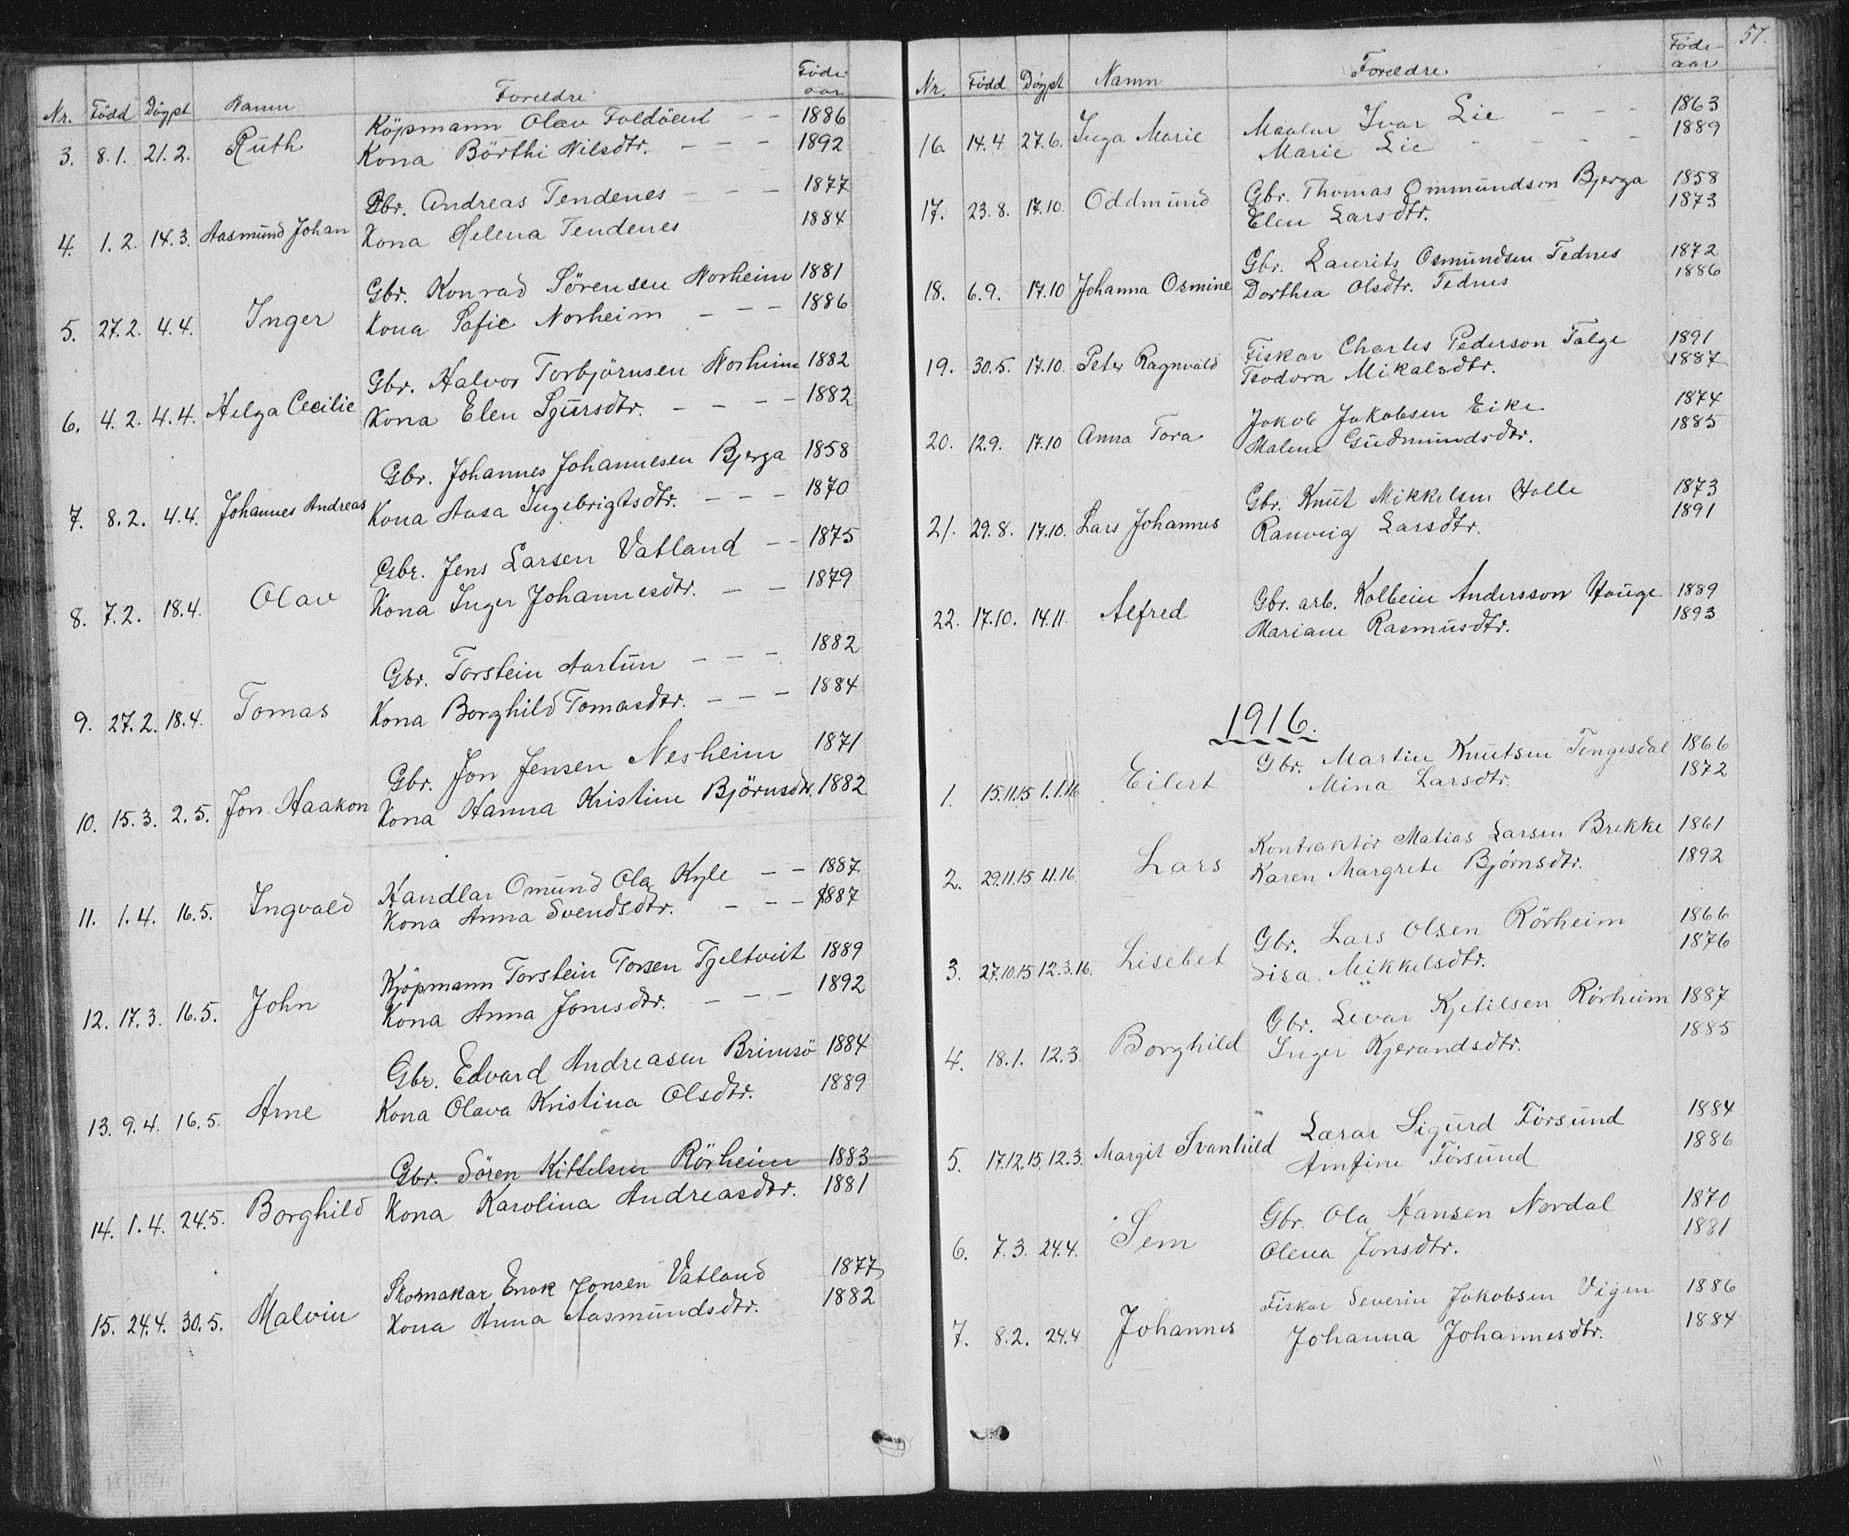 Nr. Född Döypt Namn Foreldre Föde-aar
Köpmann Olav Foldöent — — 1886
3. 8.1. 21.2. Ruth Kona Börthi Nilsdtr. — — — 1892
Gbr. Andreas Tendenes — — — 1877
4. 1.2. 14.3. Aasmund Johan Kona Helena Tendenes 1884
Gbr. Konrad Sörensen Norheim 1881
5. 27.2. 4.4. Inger Kona Sofie Norheim — — — 1886
Gbr. Halvor Torbjörnsen Norheim 1882
6. 4.2. 4.4. Helga Cecilie Kona Elen Sjursdtr. — — — — 1882
Gbr. Johannes Johannesen Bjerga 1858
7. 8.2. 4.4. Johannes Andreas Kona Aasa Ingebrigtsdtr. — — — 1870
Gbr. Jens Larsen Vatland — — 1875
8. 7.2. 18.4. Olav Kona Inger Johannesdtr. — — 1879
Gbr. Torstein Aartun — — — 1882
9. 27.2. 18.4. Tomas Kona Borghild Tomasdtr. — — — 1884
Gbr. Jon Jensen Nesheim 1871
10. 15.3. 2.5. Jon Haakon Kona Hanna Kristine Björnsdtr. 1882
Handlar Omund Ola Kyle — — 1887
11. 1.4. 16.5. Ingvald Kona Anna Svendsdtr. — — — 1887
Kjöpmann Torstein Torsen Tjeltveit 1889
12. 17.3. 16.5. John Kona Anna Jonesdtr. — — — 1892
Gbr. Edvard Andreasen Brimsö 1884
13. 9.4. 16.5. Arne Kona Olava Kristina Olsdtr. 1889
Gbr. Sören Kittelsen Rörheim 1883
14. 1.4. 24.5. Borghild Kona Karolina Andreasdtr. 1881
Skomakar Enok Jonsen Vatland 1877
15. 24.4. 30.5. Malvin Kona Anna Aasmundsdtr. 1882
57.
Nr. Född Döypt Namn Foreldre Föde-aar
Maalar Ivar Lie — — — 1863
16. 14.4 27.6. Inga Marie Marie Lie — — — — 1889
Gbr. Thomas Ommundson Bjerga 1858
17. 23.8. 17.10. Oddmund Elen Larsdtr. 1873
Gbr. Laurits Osmundsen Tednes 1872
18. 6.9. 17.10 Johanna Osmine Dorthea Olsdtr. Tednes 1886
Fiskar Charles Pederson Talge 1891
19. 30.5. 17.10. Peter Ragnvald Teodora Mikalsdtr. 1887
Jakob Jakobsen Eike 1874
20. 12.9. 17.10 Anna Tora Malene Gudmundsdtr. 1885
Gbr. Knut Mikkelsen Halle 1873
21. 29.8. 17.10. Lars Johannes Ranveig Larsdtr. 1891
Gbr. arb. Kolbein Andersson Hauge 1889
22. 17.10. 14.11. Alfred Mariane Rasmusdtr. 1893
1916.
Gbr. Martin Knutsen Tengesdal 1866
1. 15.11.15 1.1.16 Eilert Mina Larsdtr. 1872
Kontraktör Matias Larsen Brekke 1861
2. 29.11.15 1.1.16. Lars Karen Margrete Bjørnsdtr. 1892
Gbr. Lars Olsen Rörheim 1866
3. 27.10.15 12.3.16. Lisebet Sisa Mikkelsdtr. 1876
Gbr. Sevar Kjetilsen Rörheim 1887
4. 18.1. 12.3. Borghild Inger Kjerandsdtr. 1885
Lærar Sigurd Försund 1884
5. 17.12.15. 12.3. Margit Svanhild Arnfine Försund 1886
Gbr. Ola Hansen Nordal 1870
6. 7.3. 24.4. Sem Olena Jonsdtr. 1881
Fiskar Severin Jakobsen Vigen 1886
7. 8.2. 24.4 Johannes Johanna Johannesdtr. 1884